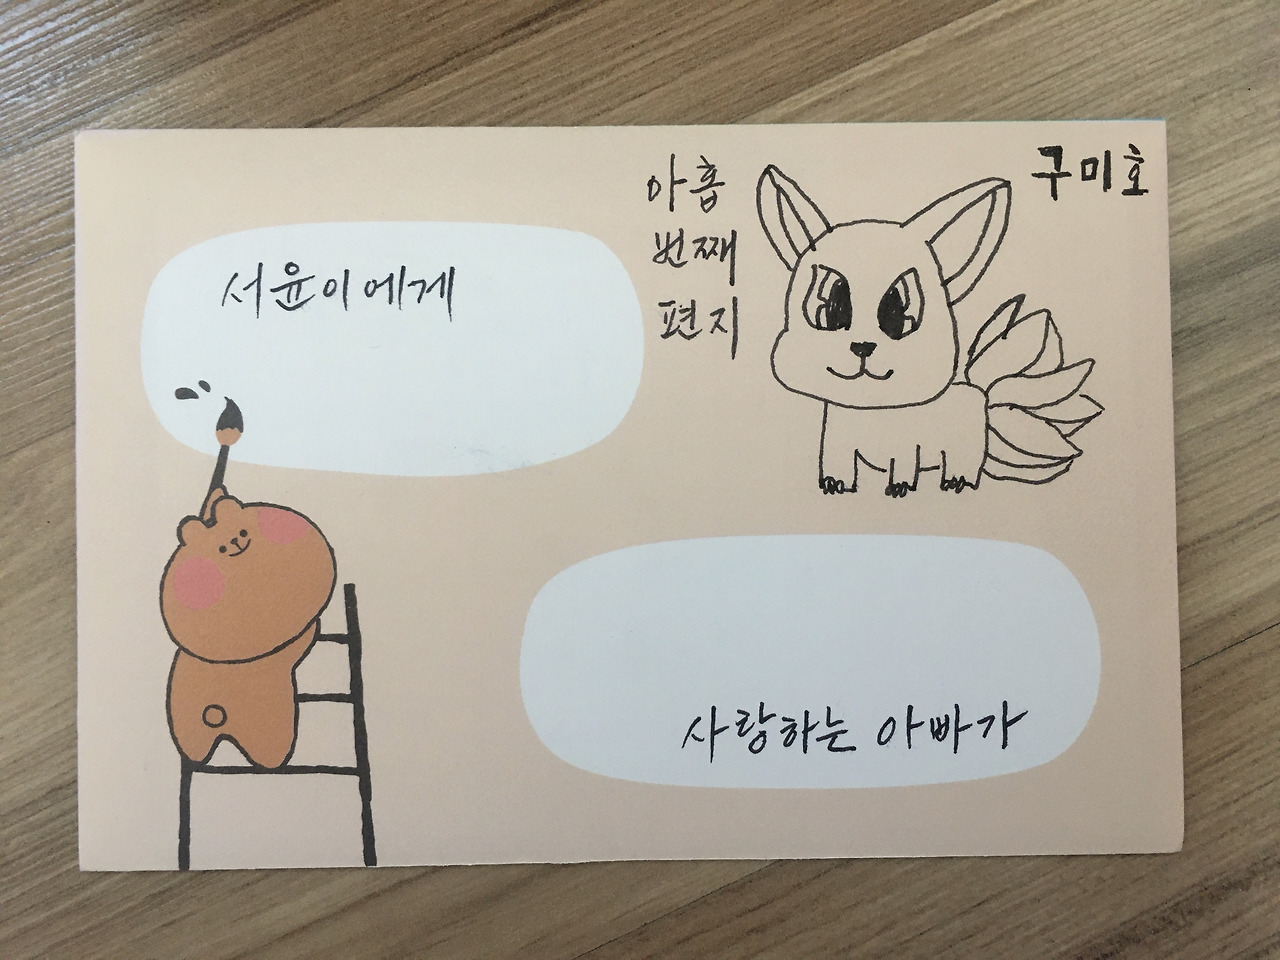 서윤이에게
아홉
번째
편지
구미호
사랑하는 아빠가